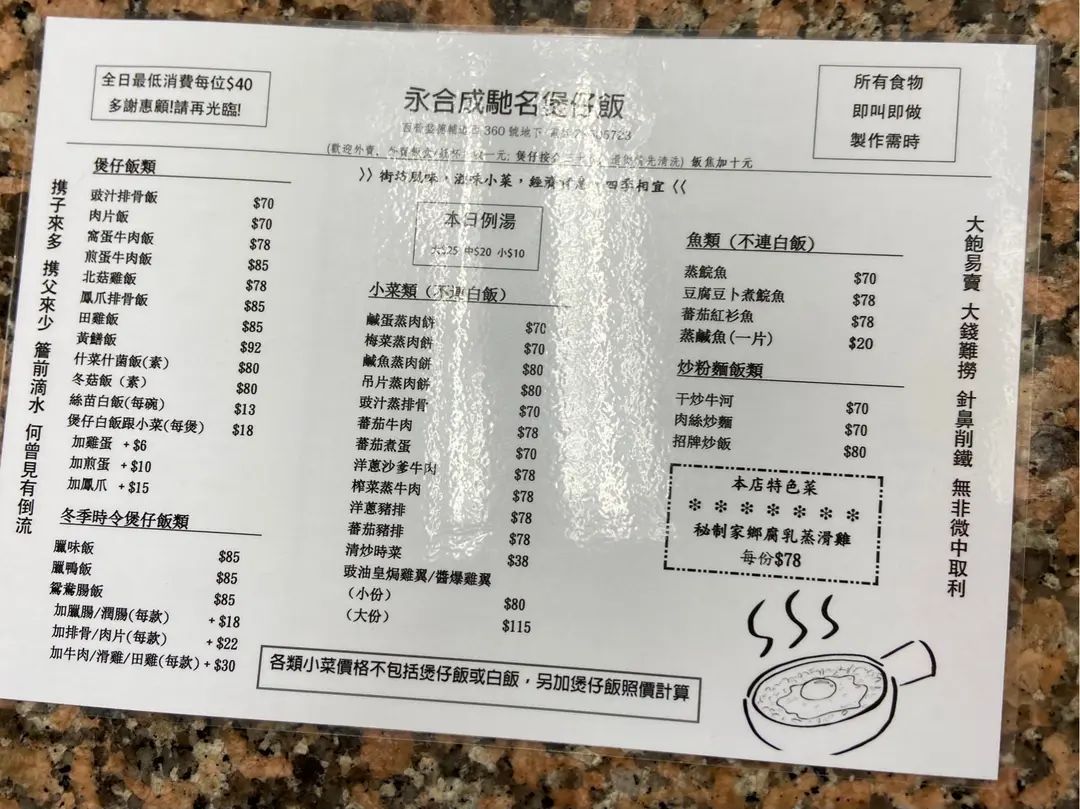 全日最低消費每位$40
多謝惠顧!請再光臨!
永合成馳名煲仔飯
360 號地下
飯焦加十元
所有食物
即叫即做
製作需時
攜子來多 攜父來少 簷前滴水 何曾見有倒流
煲仔飯類
豉汁排骨飯 $70
肉片飯 $70
窩蛋牛肉飯 $78
煎蛋牛肉飯 $85
北菇雞飯 $78
鳳爪排骨飯 $85
田雞飯 $85
黃鱔飯 $92
什菜什菌飯(素) $80
冬菇飯（素） $80
絲苗白飯(每碗) $13
煲仔白飯跟小菜(每煲) $18
加雞蛋 +$6
加煎蛋 +$10
加鳳爪 +$15
冬季時令煲仔飯類
臘味飯 $85
臘鴨飯 $85
鴛鴦腸飯 $85
加臘腸/潤腸(每款) +$18
加排骨/肉片(每款) +$22
加牛肉/滑雞/田雞(每款) +$30
本日例湯
大$25 中$20 小$10
小菜類（不連白飯）
鹹蛋蒸肉餅 $70
梅菜蒸肉餅 $70
鹹魚蒸肉餅 $80
吊片蒸肉餅 $80
豉汁蒸排骨 $70
蕃茄牛肉 $78
蕃茄煮蛋 $70
洋蔥沙爹牛肉 $78
榨菜蒸牛肉 $78
洋蔥豬排 $78
蕃茄豬排 $78
清炒時菜 $38
豉油皇焗雞翼/醬爆雞翼
（小份） $80
（大份） $115
魚類（不連白飯）
蒸鯇魚 $70
豆腐豆卜煮鯇魚 $78
蕃茄紅衫魚 $78
蒸鹹魚(一片) $20
炒粉麵飯類
干炒牛河 $70
肉絲炒麵 $70
招牌炒飯 $80
本店特色菜
＊＊＊＊＊＊＊
秘制家鄉腐乳蒸滑雞
每份$78
大飽易賣 大錢難撈 針鼻削鐵 無非微中取利
各類小菜價格不包括煲仔飯或白飯，另加煲仔飯照價計算